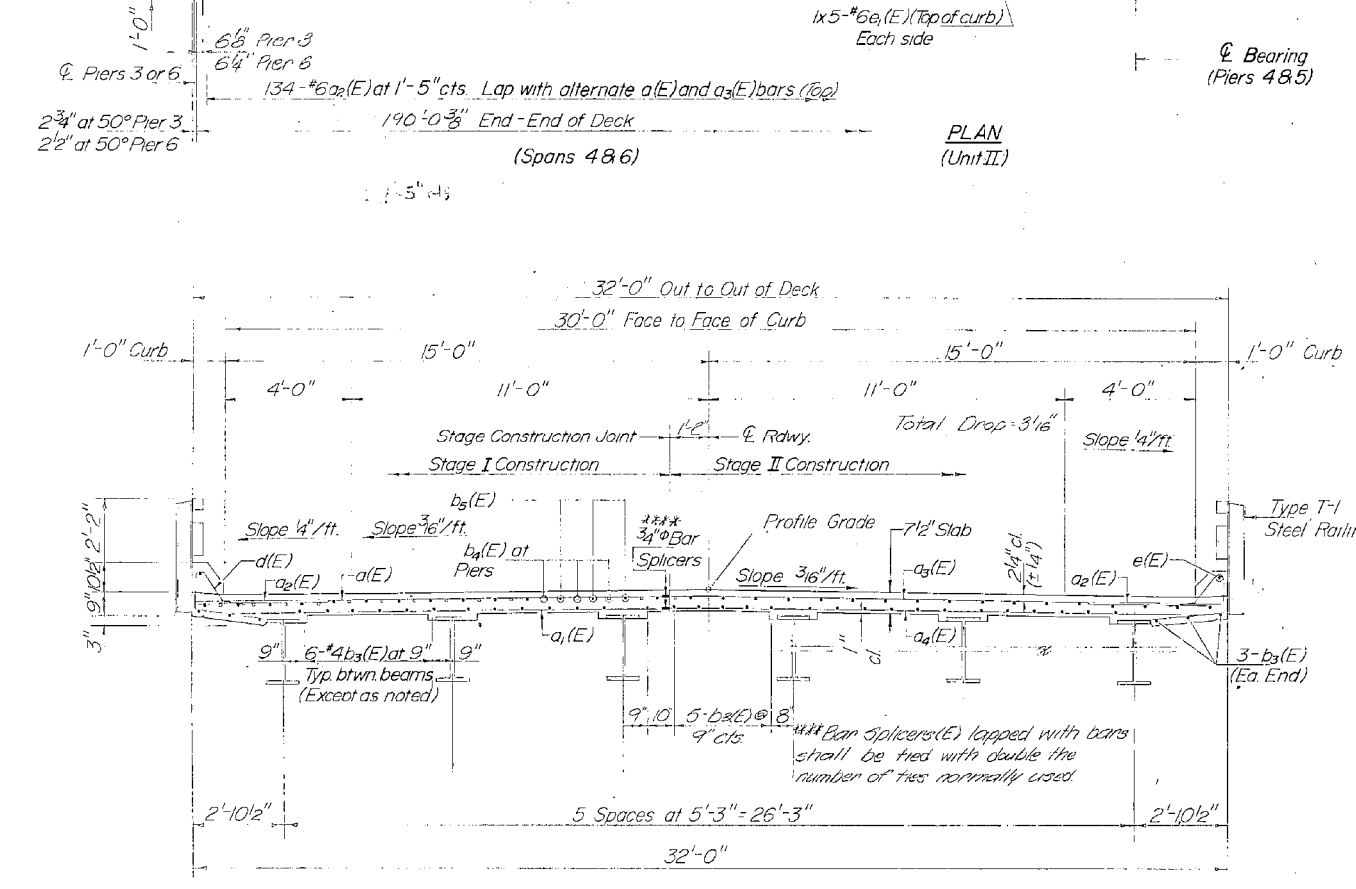 1'-0"
1x5-#6e₁(E)(Top of curb)
Each side
6⅛" Pier 3
6¼" Pier 6
℄ Piers 3 or 6
℄ Bearing
(Piers 4&5)
134-#6a₂(E) at 1'-5" cts. Lap with alternate a(E) and a₃(E) bars (Top)
2¾" at 50° Pier 3
2½" at 50° Pier 6
190'-0⅜" End-End of Deck
(Spans 4&6)
PLAN
(Unit II)
1'-5" cts
32'-0" Out to Out of Deck
30'-0" Face to Face of Curb
1'-0" Curb
15'-0"
15'-0"
1'-0" Curb
4'-0"
11'-0"
11'-0"
4'-0"
Stage Construction Joint
1'-2"
℄ Rdwy.
Total Drop=3 1/16"
Slope ¼"/ft.
Stage I Construction
Stage II Construction
b₅(E)
Slope ¼"/ft.
Slope 3/16"/ft.
****
¾"Φ Bar
Splicers
Profile Grade
7½" Slab
2¼" cl.
(±¼")
Type T-1
Steel Railin
2'-2"
10½"
9"
3"
d(E)
a₂(E)
a(E)
b₄(E) at
Piers
Slope 3/16"/ft.
a₃(E)
a₂(E)
e(E)
a₁(E)
1"
cl.
a₄(E)
9"
6-#4b₃(E) at 9"
9"
Typ. btwn. beams
(Except as noted)
3-b₃(E)
(Ea. End)
9"
10"
5-b₃(E) @
9" cts.
8"
****Bar Splicers(E) lapped with bars
shall be tied with double the
number of ties normally used.
2'-10½"
5 Spaces at 5'-3"=26'-3"
2'-10½"
32'-0"